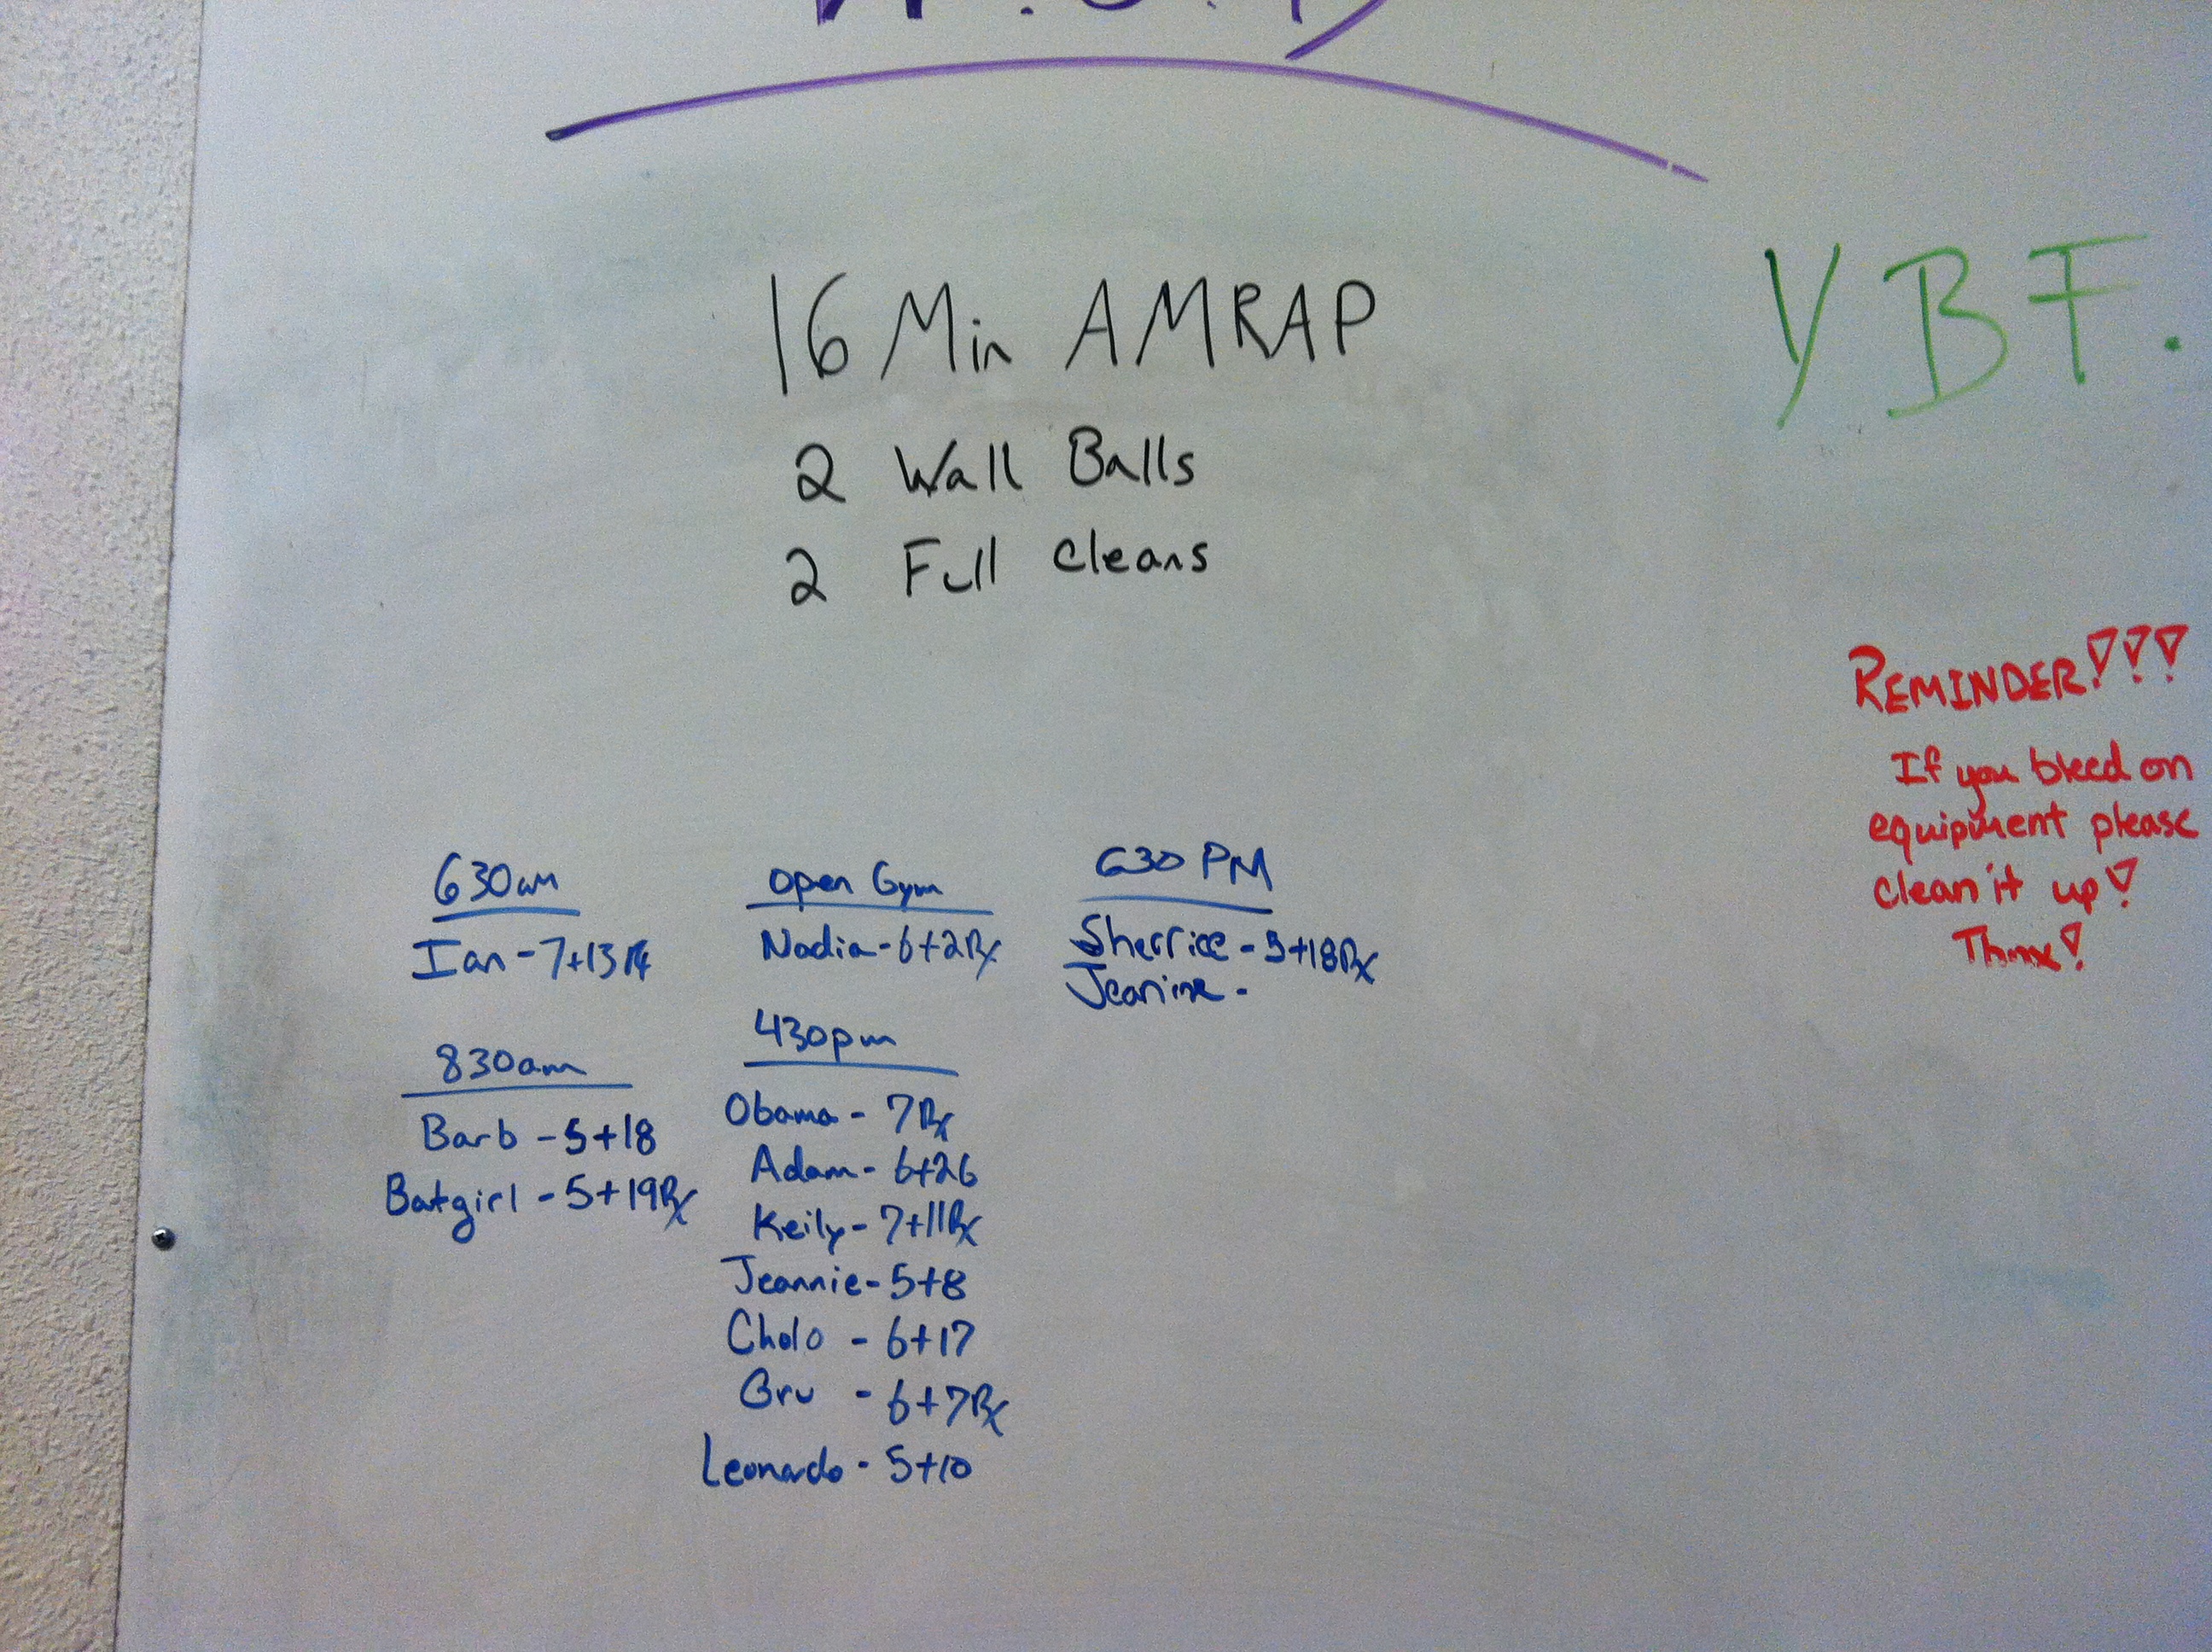 W.O.D
16 Min AMRAP
2 Wall Balls
2 Full Cleans
Y B F.
REMINDER!!!
If you bleed on
equipment please
clean it up!
Thnx!
630am
Ian - 7+13 Rx
830am
Barb - 5+18
Batgirl - 5+19 Rx
open Gym
Nadia - 6+2 Rx
430pm
Obama - 7 Rx
Adam - 6+26
Keily - 7+11 Rx
Jeannie - 5+8
Cholo - 6+17
Gru - 6+7 Rx
Leonardo - 5+10
630 PM
Sherrice - 5+18 Rx
Jeanine -